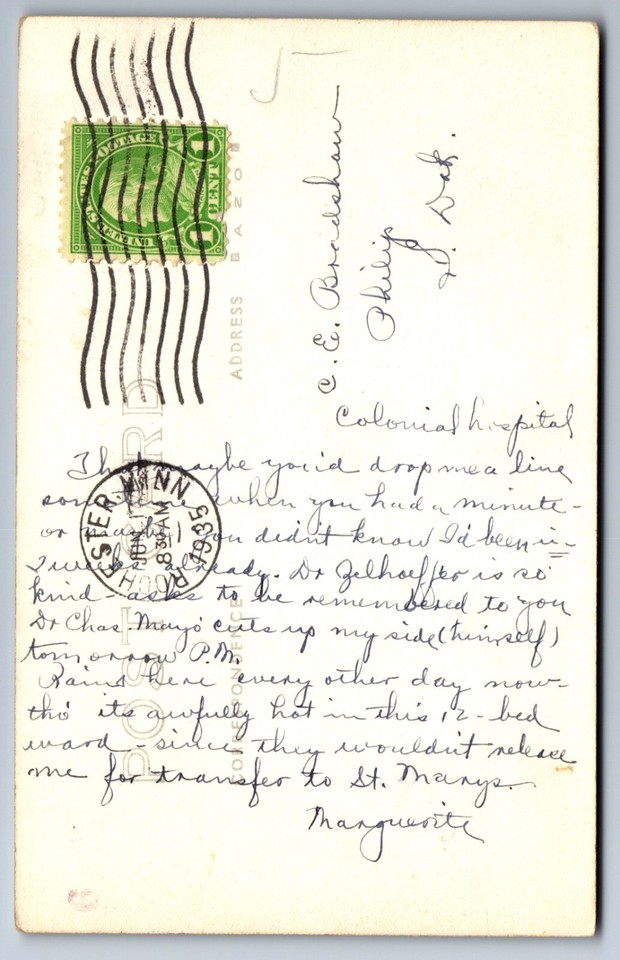 U.S. POSTAGE
1 CENT 1
C. E. Bradshaw
Philip
S. Dak.
POST CARD
ADDRESS
CORRESPONDENCE
ROCHESTER MINN.
JUN 11
8 30 AM
1935
Colonial hospital
maybe you'd drop me a line
when you had a minute -
or maybe you didn't know I'd been in
2 weeks already. Dr Zelhoeffer is so
kind - asks to be remembered to you
Dr Chas. Mayo cuts up my side (himself)
tomorrow P.M.
Rains here every other day now -
tho' its awfully hot in this 12 - bed
ward - since they wouldn't release
me for transfer to St. Marys.
Marguerite